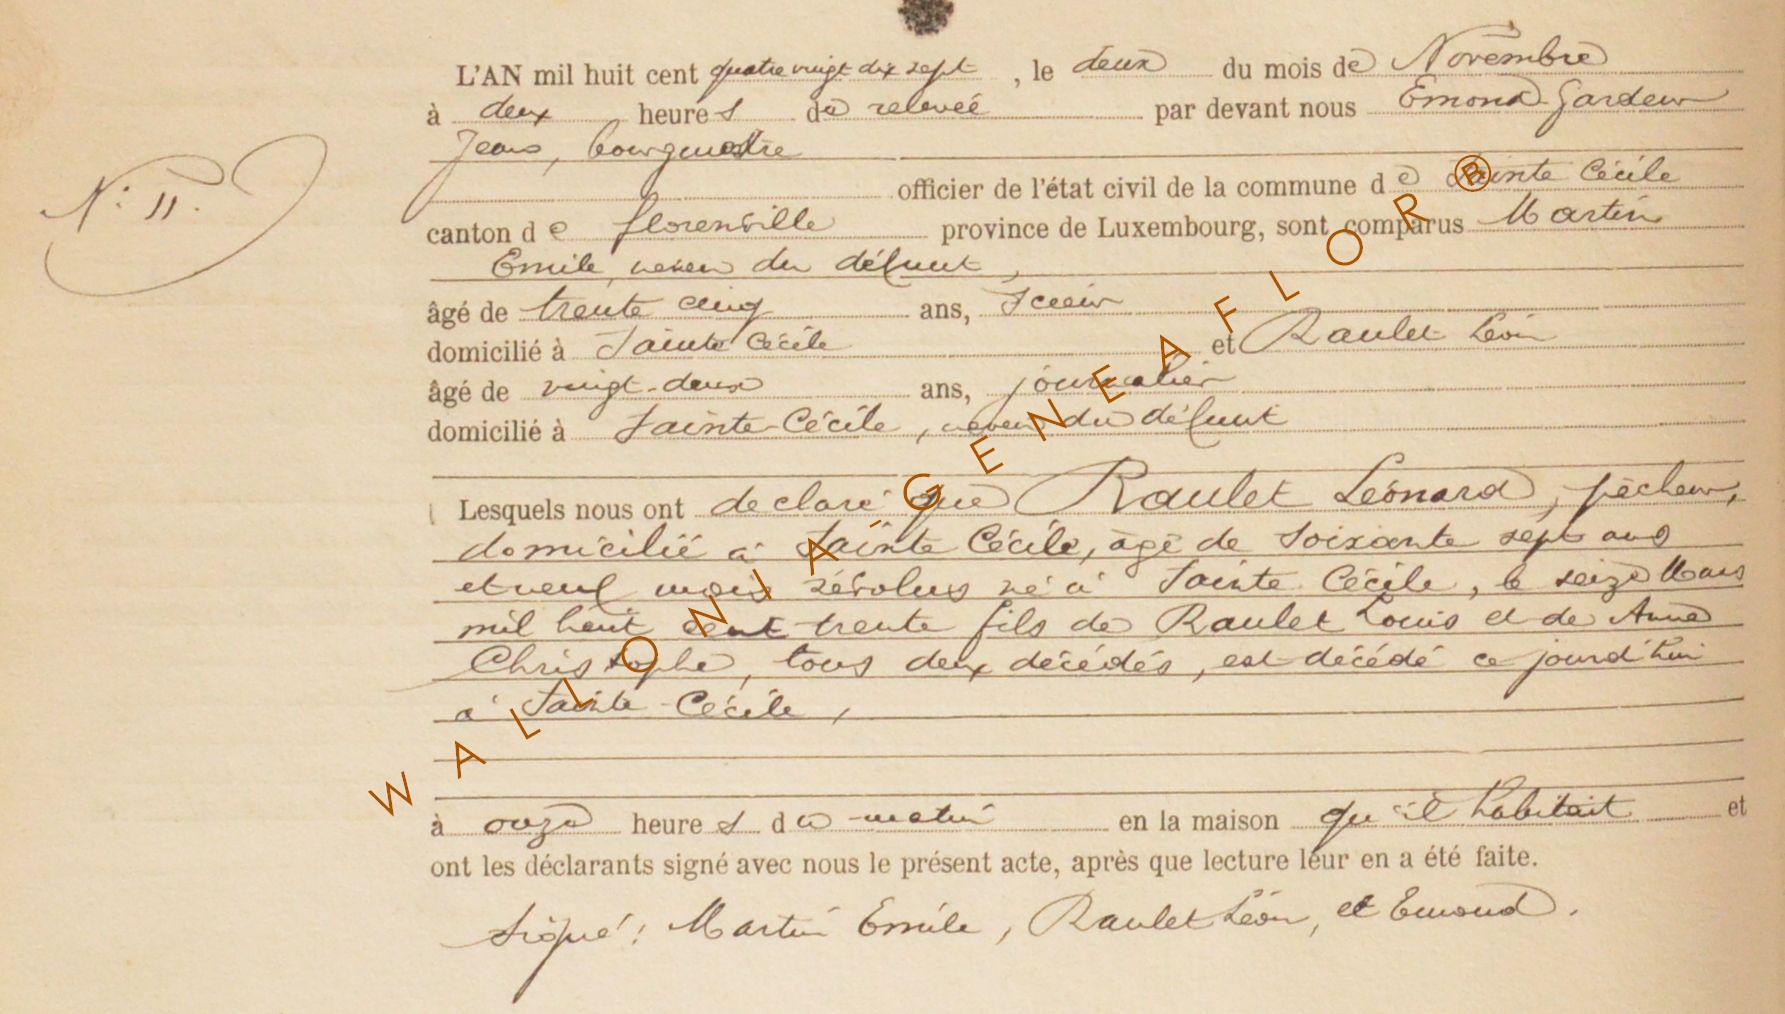 L'AN mil huit cent quatre vingt dix sept, le deux du mois de Novembre
à deux heures de relevée par devant nous Emond Gardeur
Jean, bourgmestre
N.° 11.
officier de l'état civil de la commune de Sainte Cécile
canton de florenville province de Luxembourg, sont comparus Martin
Emile, neveu du défunt,
âgé de trente cinq ans, Scieur
domicilié à Sainte Cécile et Raulet Léon
âgé de vingt-deux ans, journalier
domicilié à Sainte-Cécile, neveu du défunt
Lesquels nous ont declaré que Raulet Léonard, pêcheur,
domicilié à Sainte Cécile, âgé de soixante sept ans
et neuf mois révolus né à Sainte Cécile, le seize Mars
mil huit cent trente fils de Raulet Louis et de Anne
Christophe, tous deux décédés, est décédé ce jourd'hui
à Sainte-Cécile,
à onze heures du matin en la maison qu'il habitait et
ont les déclarants signé avec nous le présent acte, après que lecture leur en a été faite.
Signé: Martin Emile, Raulet Léon, et Emond.
WALLONIA - GENEAFLOR®